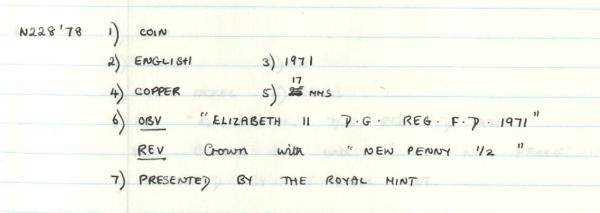 N228'78 1) COIN
2) ENGLISH 3) 1971
4) COPPER 5) 17 MMS
6) OBV "ELIZABETH II D.G. REG. F.D 1971"
REV Crown with "NEW PENNY 1/2"
7) PRESENTED BY THE ROYAL MINT